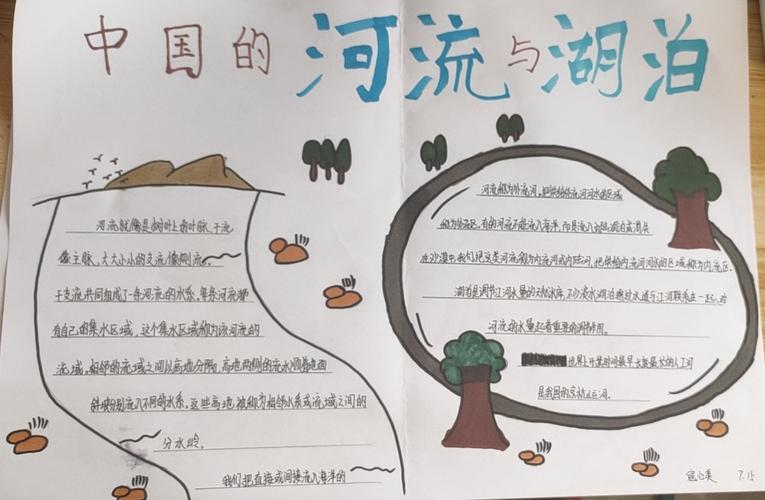 中国的河流与湖泊
河流就像是树叶上的叶脉,干流
像主脉,大大小小的支流像侧脉。
干支流共同组成了一条河流的水系,每条河流都
有自己的集水区域,这个集水区域称为该河流的
流域。相邻的流域之间以高地分隔,高地两侧的流水顺着地面
斜坡分别流入不同的水系。这些高地被称为相邻水系或流域之间的
分水岭。
我们把直接或间接流入海洋的
河流称为外流河,把供给外流河河水的区域
称为外流区,有的河流不能流入海洋,而是流入内陆湖泊或消失
在沙漠中,我们把这类河流称为内流河或内陆河,把供给内流河河水的区域称为内流区。
湖泊是调节江河水量的天然水库,不少淡水湖泊通过水道与江河联系在一起,对
河流的水量起着重要的调节作用。
世界上开凿时间最早、长度最长的人工河
是我国的京杭大运河。
7.15